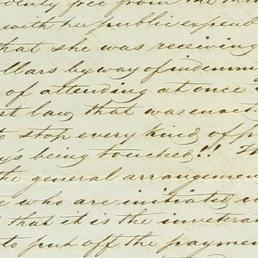 free from the
with her public expend
that she was receiving
llars by way of indemni
of attending at once
st law, that was enact
to stop every kind of p
y's being touched!! Th
the general arrangemen
e who are initiated
that it is the invetera
to put off the paymen